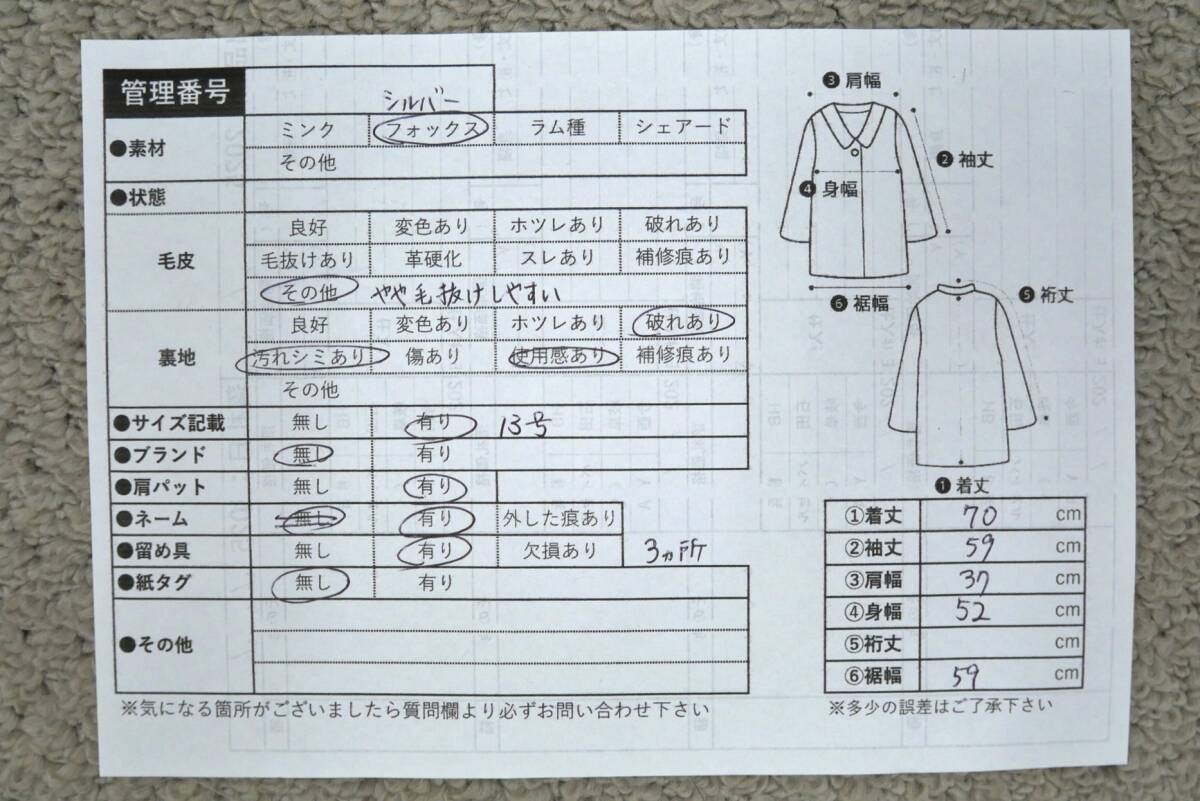 管理番号
シルバー
●素材 ミンク フォックス ラム種 シェアード
その他
●状態
毛皮 良好 変色あり ホツレあり 破れあり
毛抜けあり 革硬化 スレあり 補修痕あり
その他 やや毛抜けしやすい
裏地 良好 変色あり ホツレあり 破れあり
汚れシミあり 傷あり 使用感あり 補修痕あり
その他
●サイズ記載 無し 有り 13号
●ブランド 無し 有り
●肩パット 無し 有り
●ネーム 無し 有り 外した痕あり
●留め具 無し 有り 欠損あり 3ヵ所
●紙タグ 無し 有り
●その他
※気になる箇所がございましたら質問欄より必ずお問い合わせ下さい
❸肩幅
❷袖丈
❹身幅
❻裾幅
❺裄丈
❶着丈
①着丈 70 cm
②袖丈 59 cm
③肩幅 37 cm
④身幅 52 cm
⑤裄丈 cm
⑥裾幅 59 cm
※多少の誤差はご了承下さい